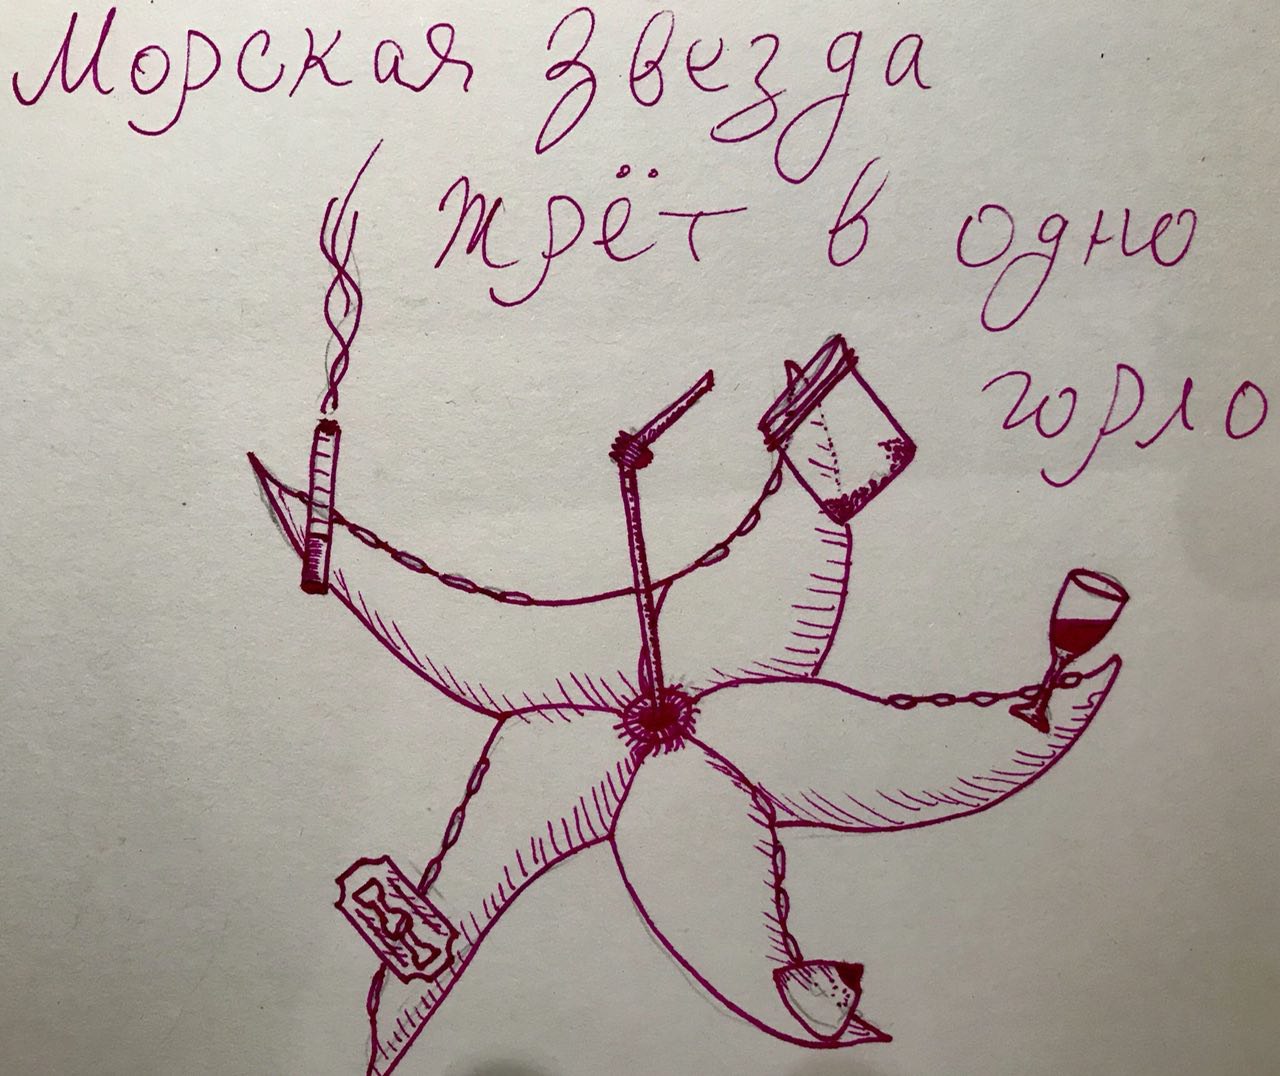 Морская звезда
жрёт в одно
горло